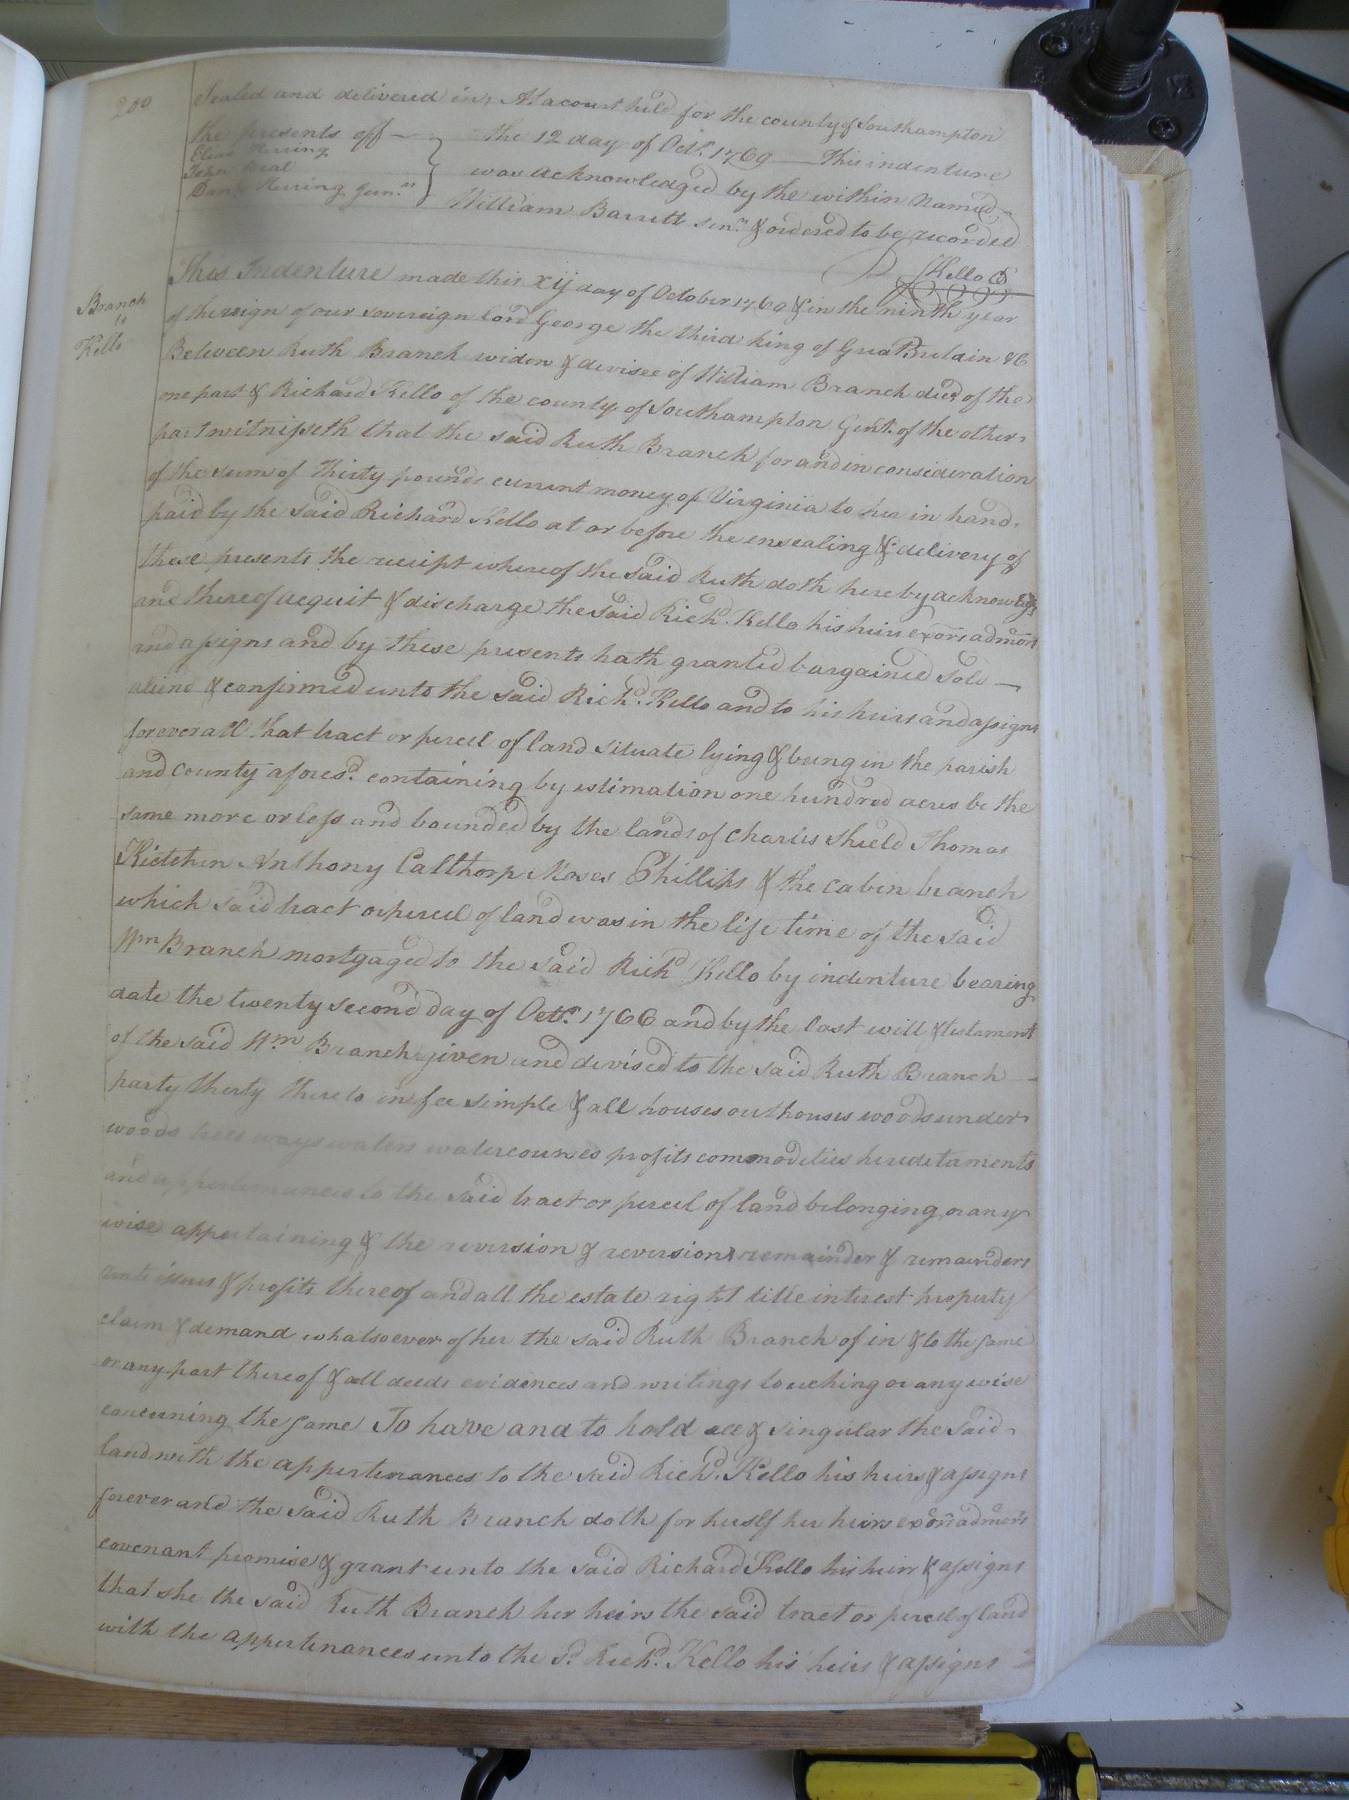 200
Sealed and delivered in At a court held for the county of Southampton
the presents off — the 12 day of Octr. 1769 — This indenture
Elias Herring
John Beal was acknowledged by the within Named
Danl. Herring Junr. William Barrett senr. & ordered to be recorded
RKello CC
Branch
to
Kello
This Indenture made this xij day of October 1769 & in the ninth year
of the reign of our sovereign lord George the third king of Great Britain &C
Between Ruth Branch widow & devisee of William Branch decd of the
one part & Richard Kello of the county of Southampton Gent. of the other
part witnisseth that the said Ruth Branch for and in consideration
of the sum of thirty pounds current money of Virginia to her in hand
paid by the said Richard Kello at or before the ensealing & delivery of
these presents the receipt whereof the said Ruth doth hereby acknowledge
and thereof acquit & discharge the said Richd. Kello his heirs exors admors
and assigns and by these presents hath granted bargained Sold —
aliend & confirmed unto the said Richd. Kello and to his heirs and assigns
forever all that tract or percel of land situate lying & being in the parish
and county aforesd. containing by estimation one hundred acres be the
same more or less and bounded by the lands of Charles Shield Thomas
Kietchin Anthony Calthorp Moses Phillips & the cabin branch
which said tract or percel of land was in the life time of the said
Wm Branch mortgaged to the said Richd Kello by indenture bearing
date the twenty second day of Octr. 1766 and by the last will & testament
of the said Wm Branch given and devised to the said Ruth Branch —
party thereto in fee simple & all houses outhouses woods under
woods trees ways waters watercourses profits commodities hereditaments
and appertenances to the said tract or percel of land belonging or any
wise appertaining & the reversion & reversions remainder & remainders
rents issues & profits thereof and all the estate right title interest property
claim & demand whatsoever of her the said Ruth Branch of in & to the same
or any part thereof & all deeds evidences and writings touching or any wise
concerning the same To have and to hold all & singular the said
land with the appertenances to the said Richd. Kello his heirs & assigns
forever and the said Ruth Branch doth for herself her heirs exors admors
covenant promise & grant unto the said Richard Kello his heirs & assigns
that she the said Ruth Branch her heirs the said tract or percel of land
with the appertenances unto the sd. Richd. Kello his heirs & assigns